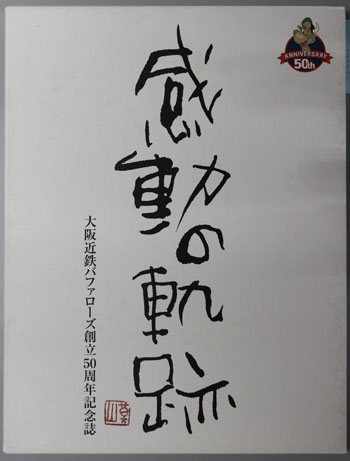 感動の軌跡
大阪近鉄バファローズ創立50周年記念誌
ANNIVERSARY
50th